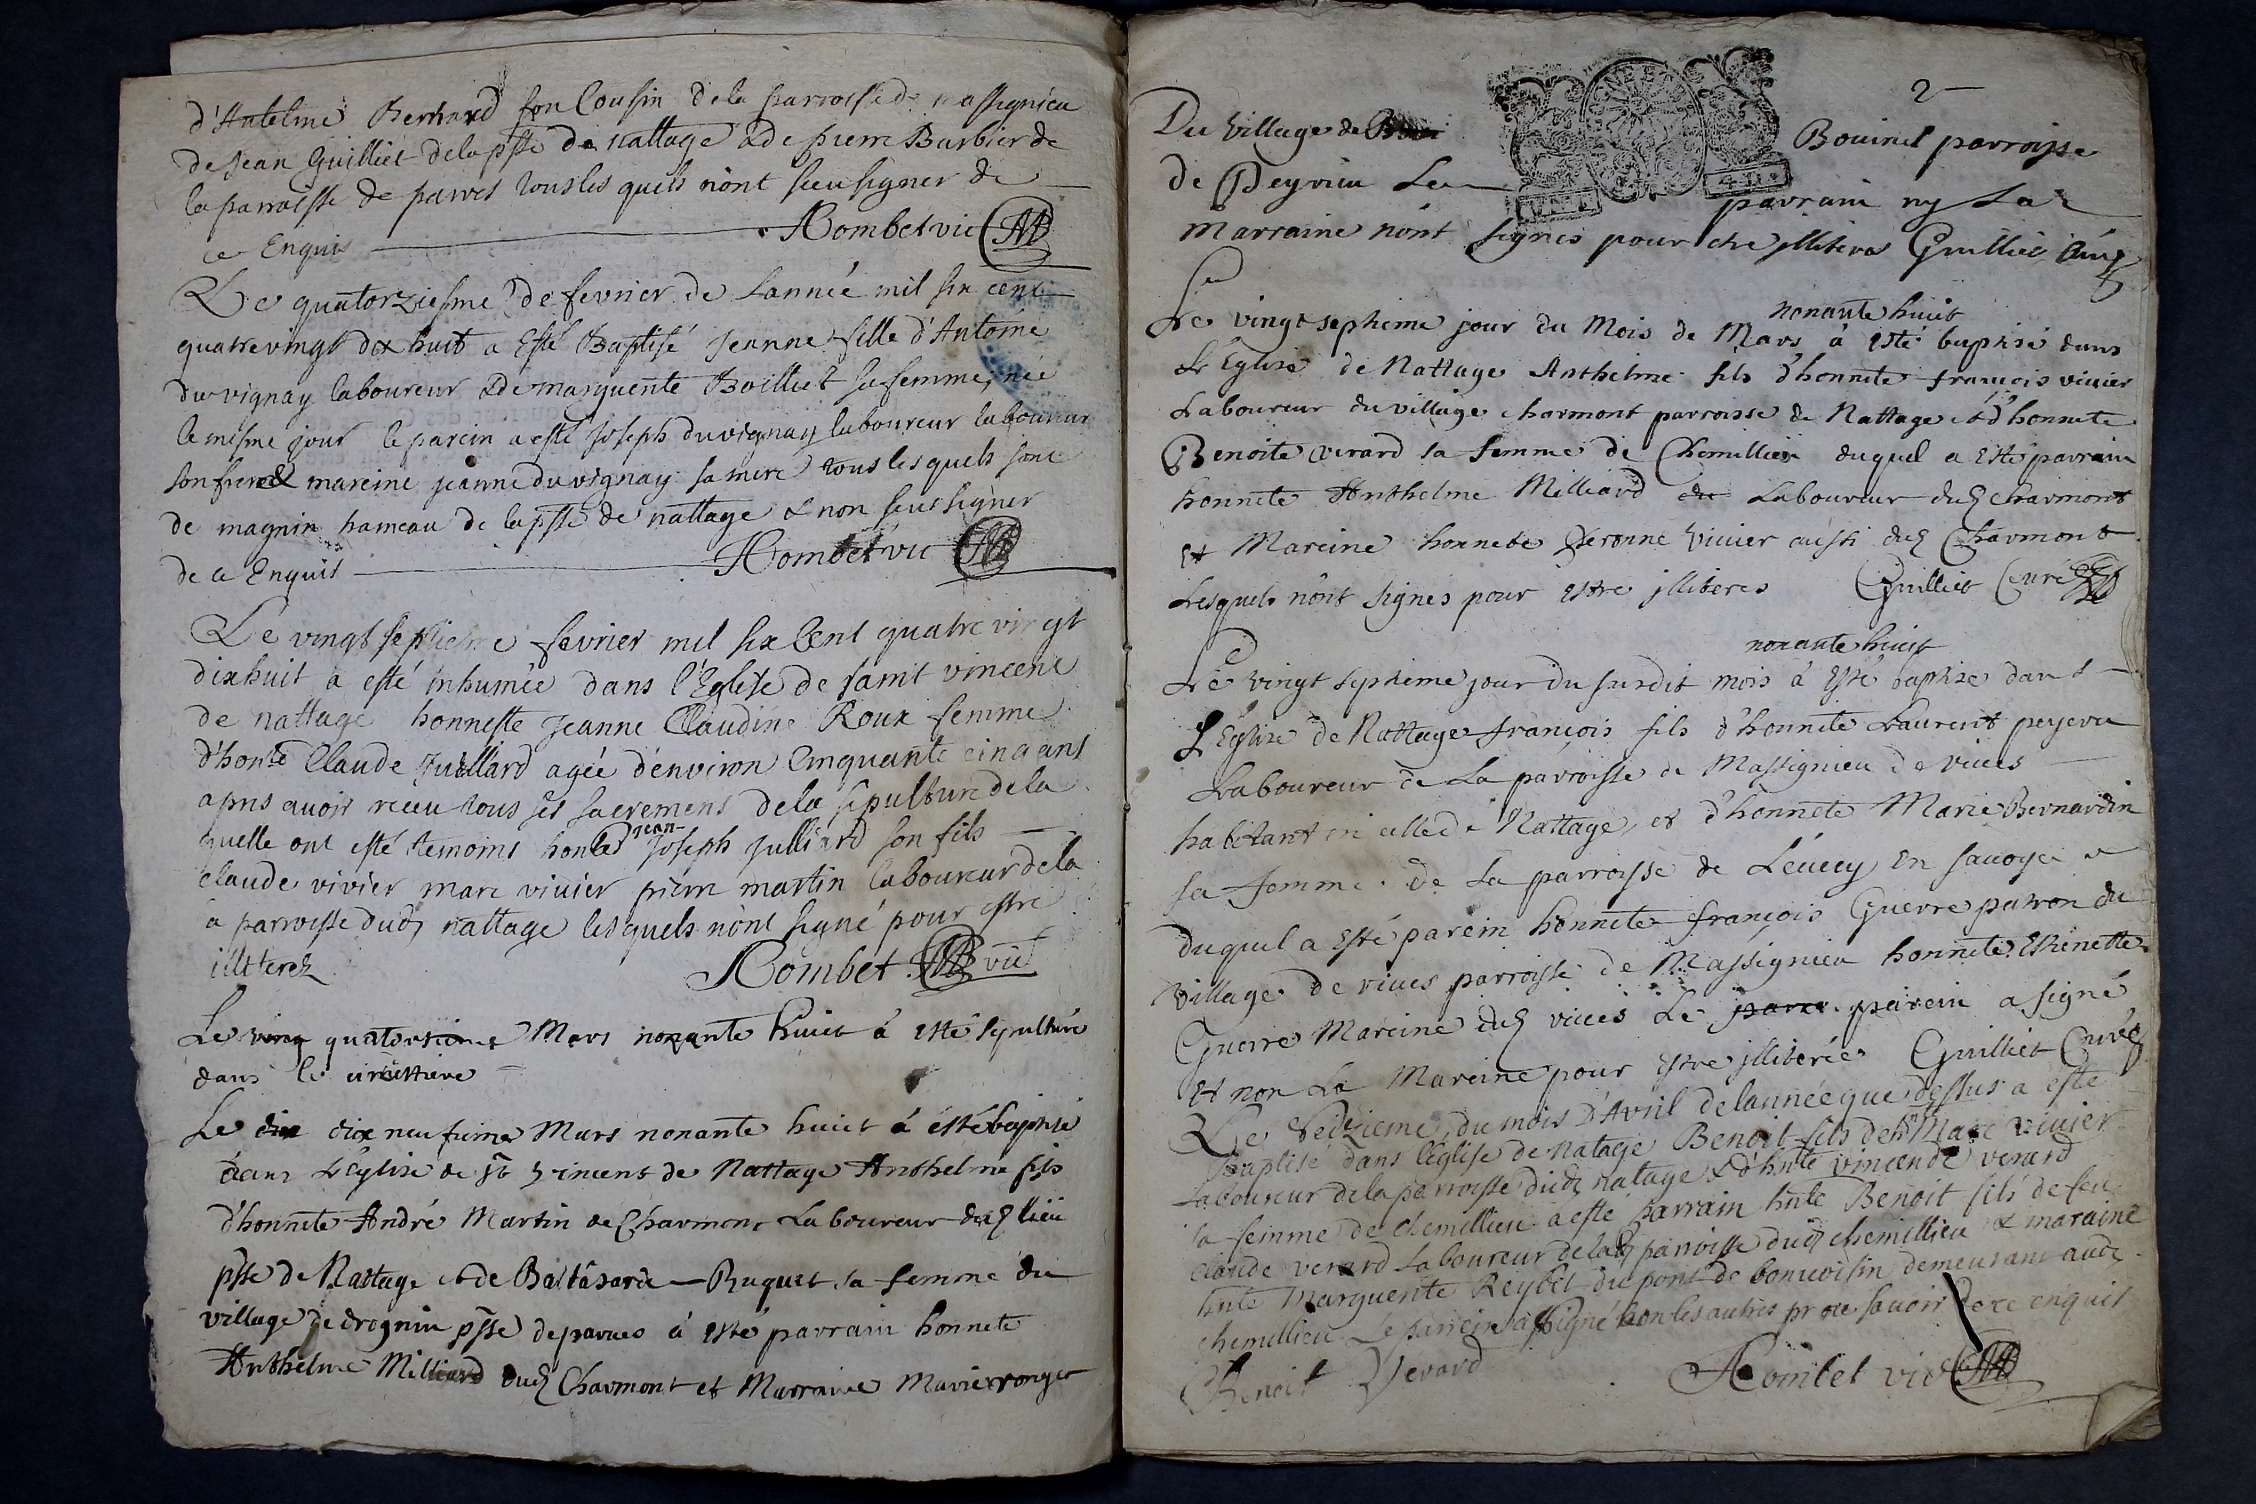 d'Antelme Bernard son Cousin de la parroisse de massignieu
de Jean Guilliet de la psse de nattage & de pierre Barbier de
la parroisse de parves tous les quels n'ont sceu signer de
ce Enquis Rombet vic
Le quatorziesme de fevrier de L'année mil six cent
quatrevingt dix huit a Esté Baptisé jeanne fille d'Antoine
duvignay laboureur & de marguerite Boilliet sa femme, née
le mesme jour le parein a esté Joseph duvignay laboureur laboureur
son frere & mareine jeanne duvignay sa mere tous les quels sont
de magnin hameau de la psse de nattage & non sceu signer
de ce Enquis Rombet vic
Le vingt septiesme fevrier mil six Cent quatre vingt
dixhuit a esté inhumée dans l'Eglise de saint vincent
de nattage honneste Jeanne Claudine Roux femme
d'honte Claude Juilliard agée d'environ Cinquante cinq ans
apres avoir receu tous ses sacremens de la sepulture de la
jean
quelle ont esté temoins Joseph Julliard son fils
claude vivier marc vivier pierre martin laboureur de la
a parroisse dud nattage lesquels n'ont signé pour estre
illiterez Rombet vic
Le ving quatorsieme Mars nonante huict à esté sepulturé
dans le cimettiere
Le dix dix neufieme Mars nonante huict à esté baptisé
dans L'église de St Vincent de Nattage Anthelme fils
d'honnete André Martin de Charmont Laboureur dud lieu
psse de Nattage et de Baltasarde Ruquet sa femme du
village de drognin psse de parves à esté parrain honnete
Anthelme Milliard dud Charmont et Marraine Marie ronger
2
Du Village de Bouinel parroisse
de Peyrieu Le parrain ny La
Marraine n'ont signés pour etre jlliteres Guilliet Curé
nonante huict
Le vingt septieme jour du Mois de Mars à esté baptisé dans
L'Eglise de Nattage Anthelme fils d'honnete françois vivier
Laboureur du village charmont parroisse de Nattage et d'honnete
Benoite verard sa femme de Chemillieu duquel a esté parrain
honnete Anthelme Milliard du Laboureur dud charmont
et Mareine honnete Peronne Vivier aussi dud Charmont
Lesquels n'ont signes pour estre jlliteres Guilliet Curé
nonante huict
Le vingt septieme jour du susdit mois à esté baptisé dans
L'Eglise de Nattage françois fils d'honnete Laurent
Laboureur de La parroisse de Massignieu de rives
habitant en celle de Nattage, et d'honnete Marie Bernardin
sa femme de La parroisse de en savoye
duquel a esté parein honnete françois Guerre patron du
village de rives parroisse de Massignieu honnete Estiennette
Guerre Mareine dud rives Le parei parein a signé
et non La Mareine pour estre jlliterée Guilliet Curé
Le Seizieme du mois d'Avril de lannée que dessus a esté
Baptisé dans l'église de natage Benoit fils de hte Marc vivier
Laboureur de la parroisse dud natage & d'hnte vincende verard
sa femme de Chemillieu a esté parrain hnte Benoit fils de feu
claude verard Laboureur de lad parroisse dud chemillieu & maraine
hnte Marguerite Reybet du pont de bonvoisin demeurant aud
chemillieu Le parrein a signé non les autres pr ne savoir de ce enquis
Benoit Verard Rombet vic